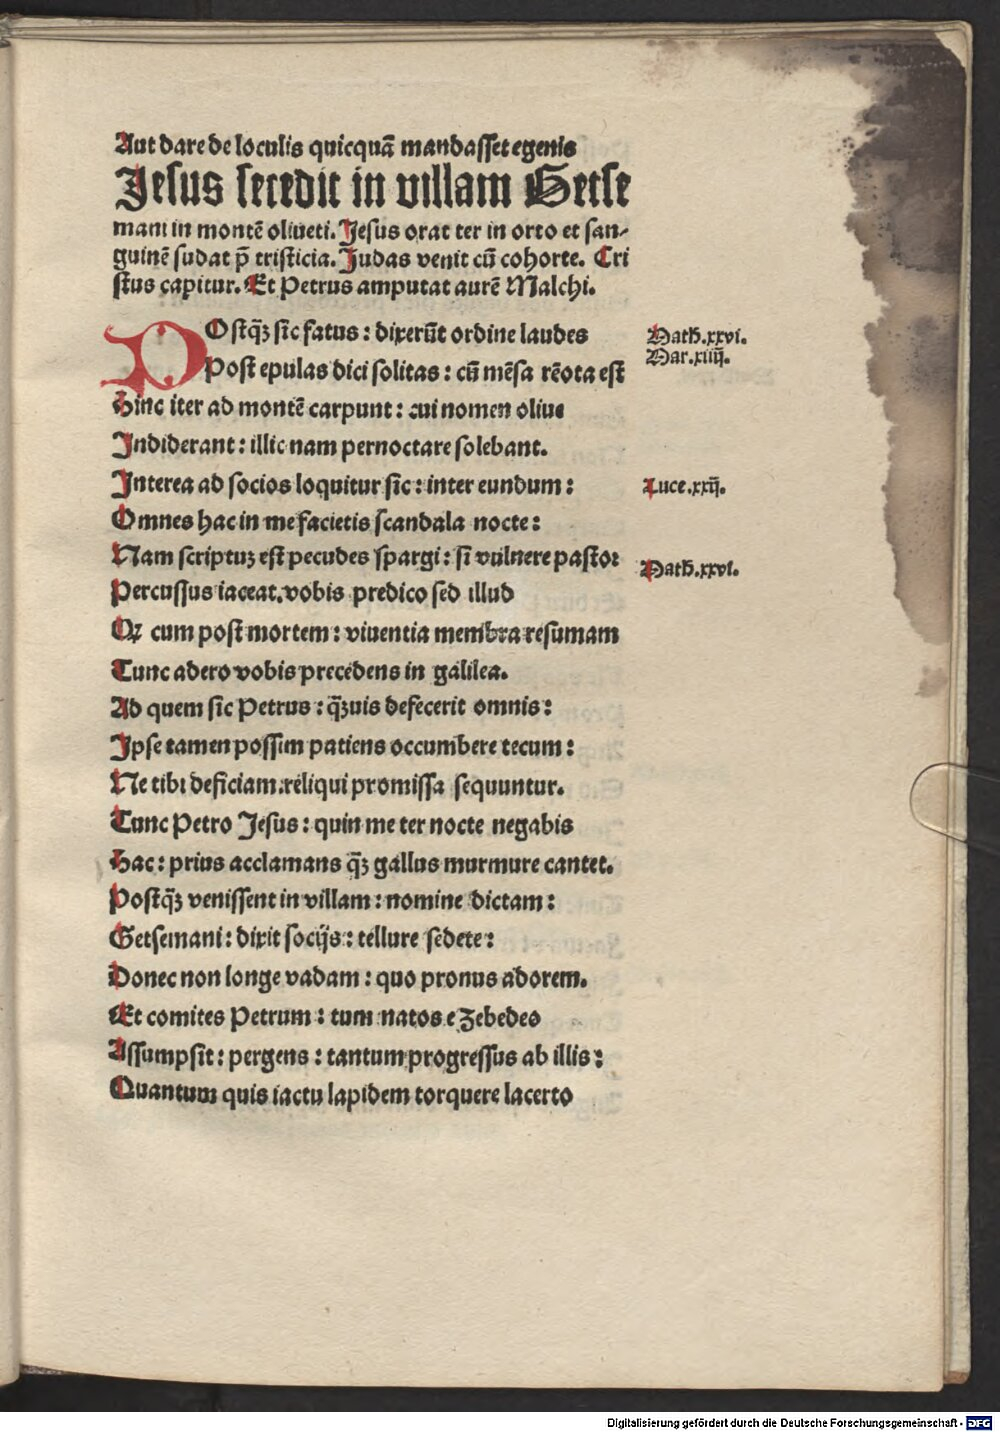 Aut dare de loculis quicquā mandasset egenis
Jesus secedit in villam Getse
mani in montē oliueti. Jesus orat ter in orto et san-
guinē sudat p̄ tristicia. Judas venit cū cohorte. Cri
stus capitur. Et Petrus amputat aurē Malchi.
POstq̄ꝫ sic fatus : dixerūt ordine laudes
Math.xxvi.
Mar.xiiij.
Post epulas dici solitas : cū mēsa rēota est
Hinc iter ad montē carpunt : cui nomen oliue
Indiderant : illic nam pernoctare solebant.
Interea ad socios loquitur sic : inter eundum :
Luce.xxij.
Omnes hac in me facietis scandala nocte :
Nam scriptuꝫ est pecudes spargi : si vulnere pastor
Math.xxvi.
Percussus iaceat. vobis predico sed illud
Qꝫ cum post mortem : viuentia membra resumam
Tunc adero vobis precedens in galilea.
Ad quem sic Petrus : q̄ꝫuis defecerit omnis :
Ipse tamen possim patiens occumbere tecum :
Ne tibi deficiam. reliqui promissa sequuntur.
Tunc Petro Jesus : quin me ter nocte negabis
Hac : prius acclamans q̄ꝫ gallus murmure cantet.
Postq̄ꝫ venissent in villam : nomine dictam :
Getsemani : dixit socijs : tellure sedete :
Donec non longe vadam : quo pronus adorem.
Et comites Petrum : tum natos e Zebedeo
Assumpsit : pergens : tantum progressus ab illis :
Quantum quis iactu lapidem torquere lacerto
Digitalisierung gefördert durch die Deutsche Forschungsgemeinschaft - DFG